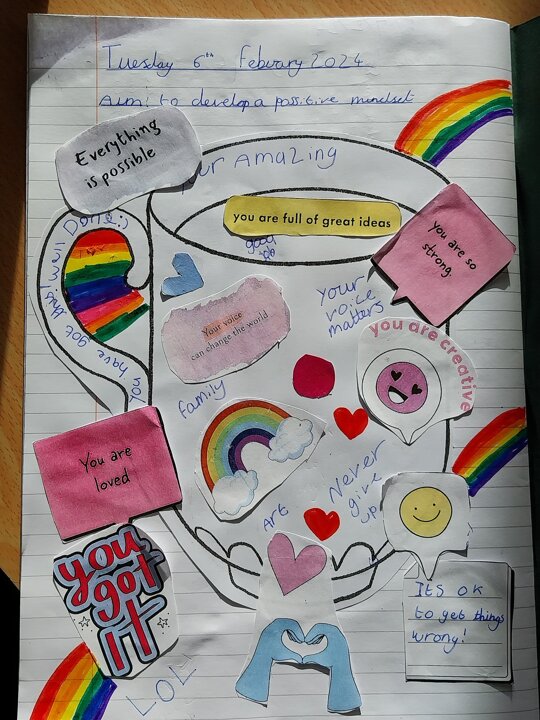 Tuesday 6th February 2024
Aim: to develop a possitive mindset
Everything
is possible
ur Amazing
you are full of great ideas
good
job
You are so
strong.
Well Done :)
you have got this!
Your
voice
matters
Your voice
can change the world
you are creative
family
You are
loved
Never
give
up
Art
you
got
IT
Its ok
to get things
wrong!
LOL